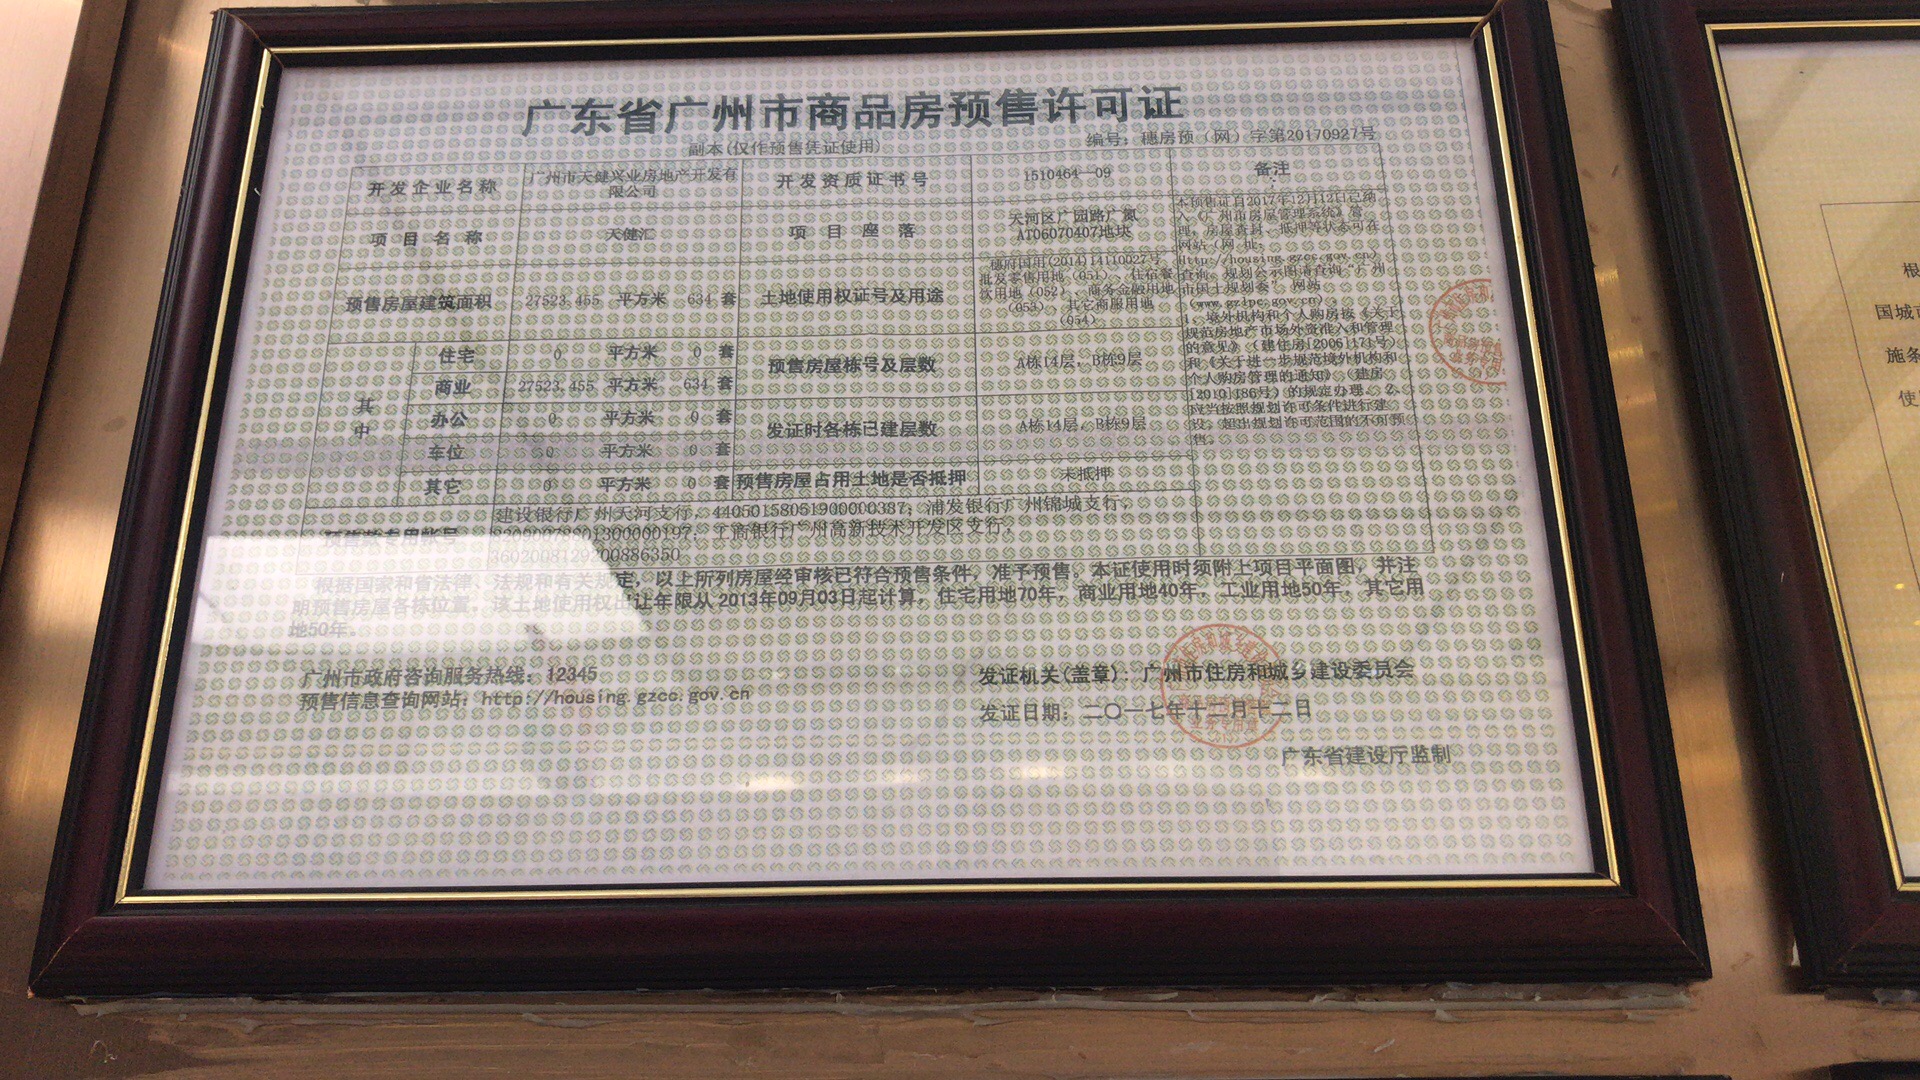 广东省广州市商品房预售许可证
副本(仅作预售凭证使用)
编号：穗房预（网）字第20170927号
开发企业名称
广州市天健兴业房地产开发有
限公司
开发资质证书号
1510464—09
备注
项目名称
天健汇
项目座落
天河区广园路广氮
AT06070407地块
预售房屋建筑面积
27523.455 平方米 634 套
土地使用权证号及用途
穗府国用(2014)14110027号
批发零售用地（051）、住宿餐
饮用地（052）、商务金融用地
（053）、其它商服用地
（054）
其中
住宅 0 平方米 0 套
商业 27523.455 平方米 634 套
办公 0 平方米 0 套
车位 0 平方米 0 套
其它 0 平方米 0 套
预售房屋栋号及层数
A栋14层，B栋9层
发证时各栋已建层数
A栋14层，B栋9层
预售房屋占用土地是否抵押
未抵押
本预售证自2017年12月12日已纳
入《广州市房屋管理系统》管
理，房屋查封、抵押等状态可在
网站（网址：
http://housing.gzcc.gov.cn）
查询。规划公示图请查询“广州
市国土规划委”网站
（www.gzlpc.gov.cn）。
1、境外机构和个人购房按《关于
规范房地产市场外资准入和管理
的意见》（建住房[2006]171号）
和《关于进一步规范境外机构和
个人购房管理的通知》（建房
[2010]186号）的规定办理。2、
应当按照规划许可条件进行建
设。超出规划许可范围的不可预
售。
建设银行广州天河支行，44050158051900000387；浦发银行广州锦城支行，
1300000197；工商银行广州高新技术开发区支行，
886350
根据国家和省法律、法规和有关规定，以上所列房屋经审核已符合预售条件，准予预售。本证使用时须附上项目平面图，并注
明预售房屋各栋位置，该土地使用权出让年限从2013年09月03日起计算，住宅用地70年，商业用地40年，工业用地50年，其它用
地50年。
广州市政府咨询服务热线：12345
预售信息查询网站：http://housing.gzcc.gov.cn
发证机关(盖章)：广州市住房和城乡建设委员会
发证日期：二〇一七年十二月十二日
广东省建设厅监制
根
国城
施条
使